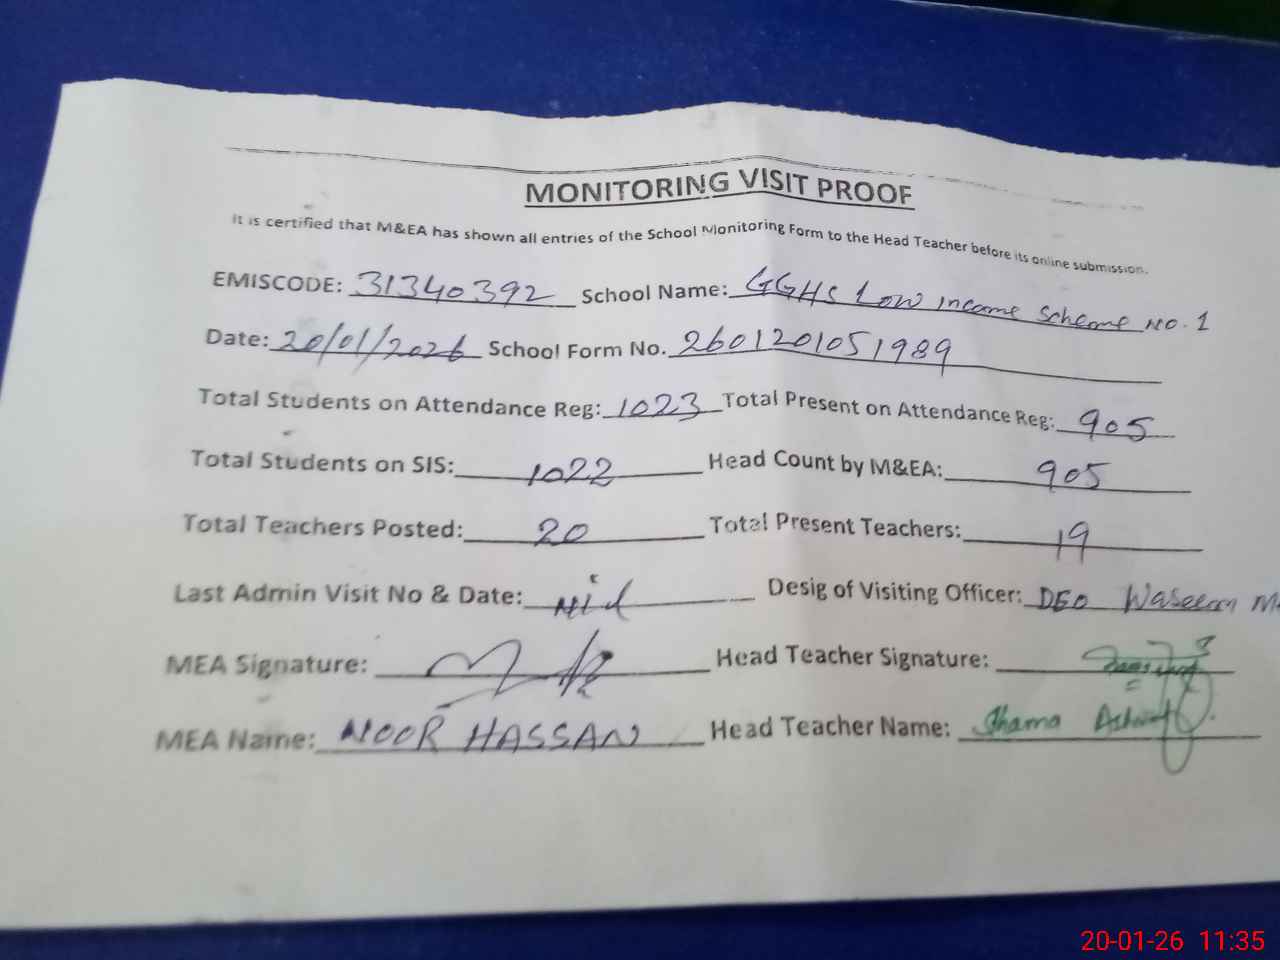 MONITORING VISIT PROOF
It is certified that M&EA has shown all entries of the School Monitoring Form to the Head Teacher before its online submission.
EMISCODE: 31340392 School Name: GGHS Low income Scheme No. 1
Date: 20/01/2026 School Form No. 2601201051989
Total Students on Attendance Reg: 1023 Total Present on Attendance Reg: 905
Total Students on SIS: 1022 Head Count by M&EA: 905
Total Teachers Posted: 20 Total Present Teachers: 19
Last Admin Visit No & Date: Nil Desig of Visiting Officer: DEO Waseem
MEA Signature: Head Teacher Signature:
MEA Name: NOOR HASSAN Head Teacher Name: Shama
20-01-26 11:35